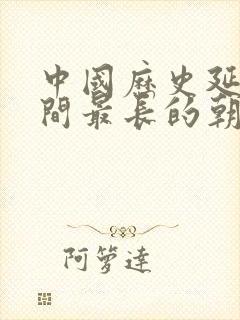 中國歷史延
間最長的朝
阿箩達